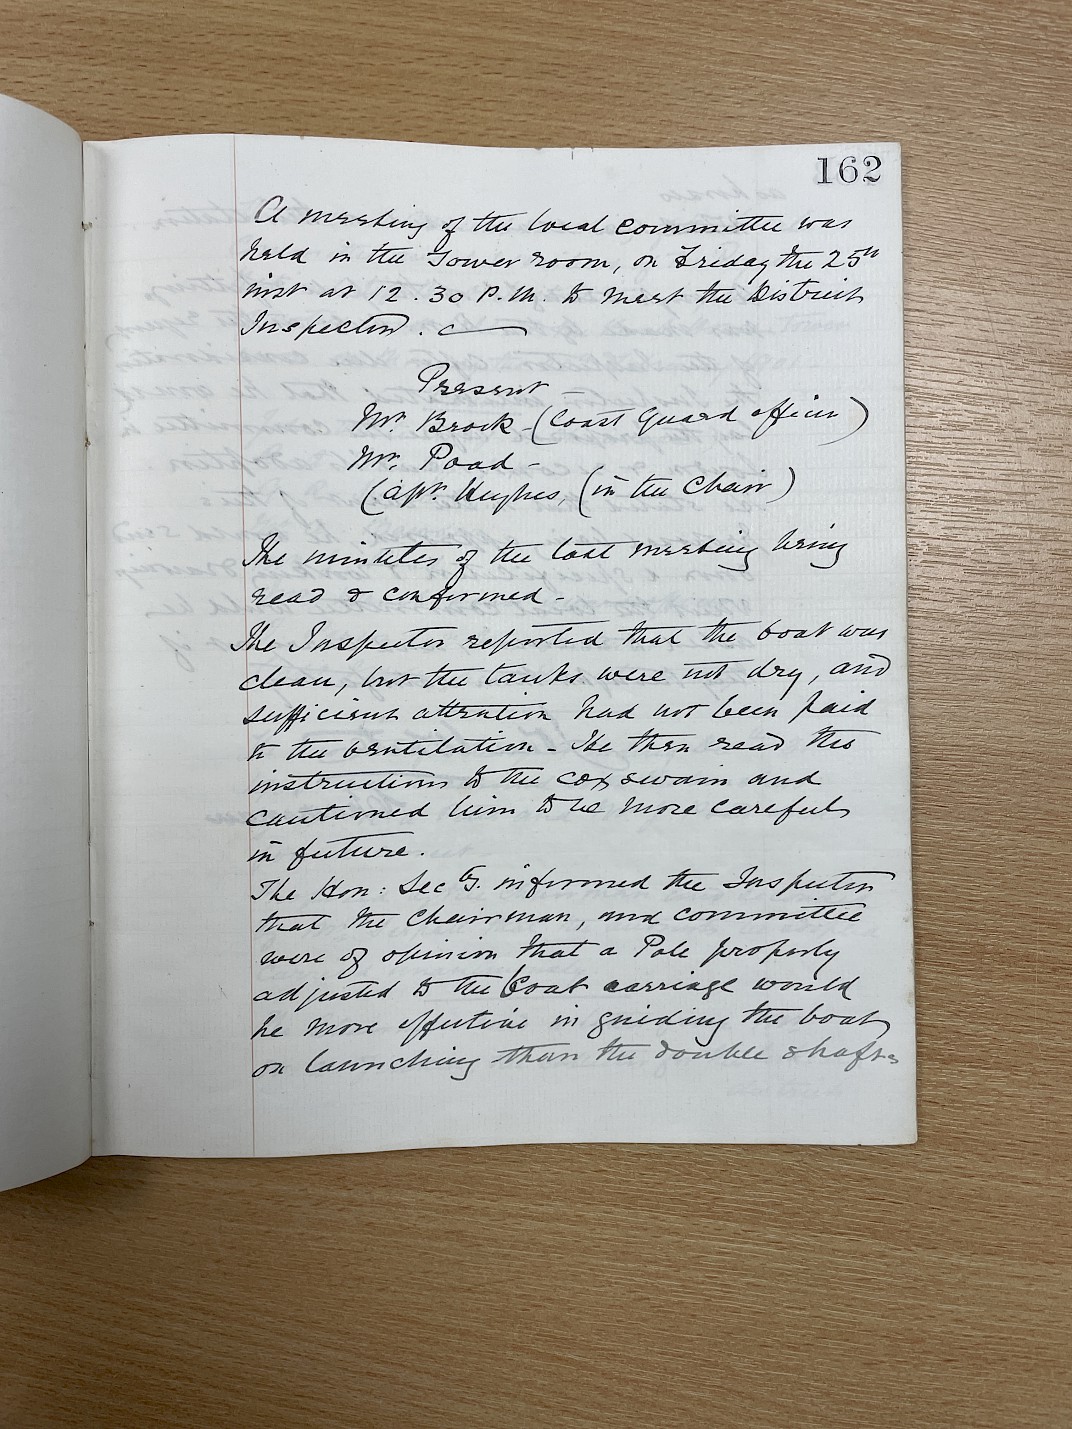 162
A meeting of the local committee was
held in the Tower room, on Friday the 25th
inst at 12.30 P.M. to meet the District
Inspector.
Present -
Mr. Brock - (Coast Guard officer)
Mr. Poad -
Capt. Hughes, (in the Chair)
The minutes of the last meeting being
read & confirmed -
The Inspector reported that the boat was
clean, but the tanks were not dry, and
sufficient attention had not been paid
to the ventilation - He then read the
instructions to the coxswain and
cautioned him to be more careful
in future.
The Hon: Secy. informed the Inspector
that the Chairman, and committee
were of opinion that a Pole properly
adjusted to the boat carriage would
be more effective in guiding the boat
on launching than the double shafts